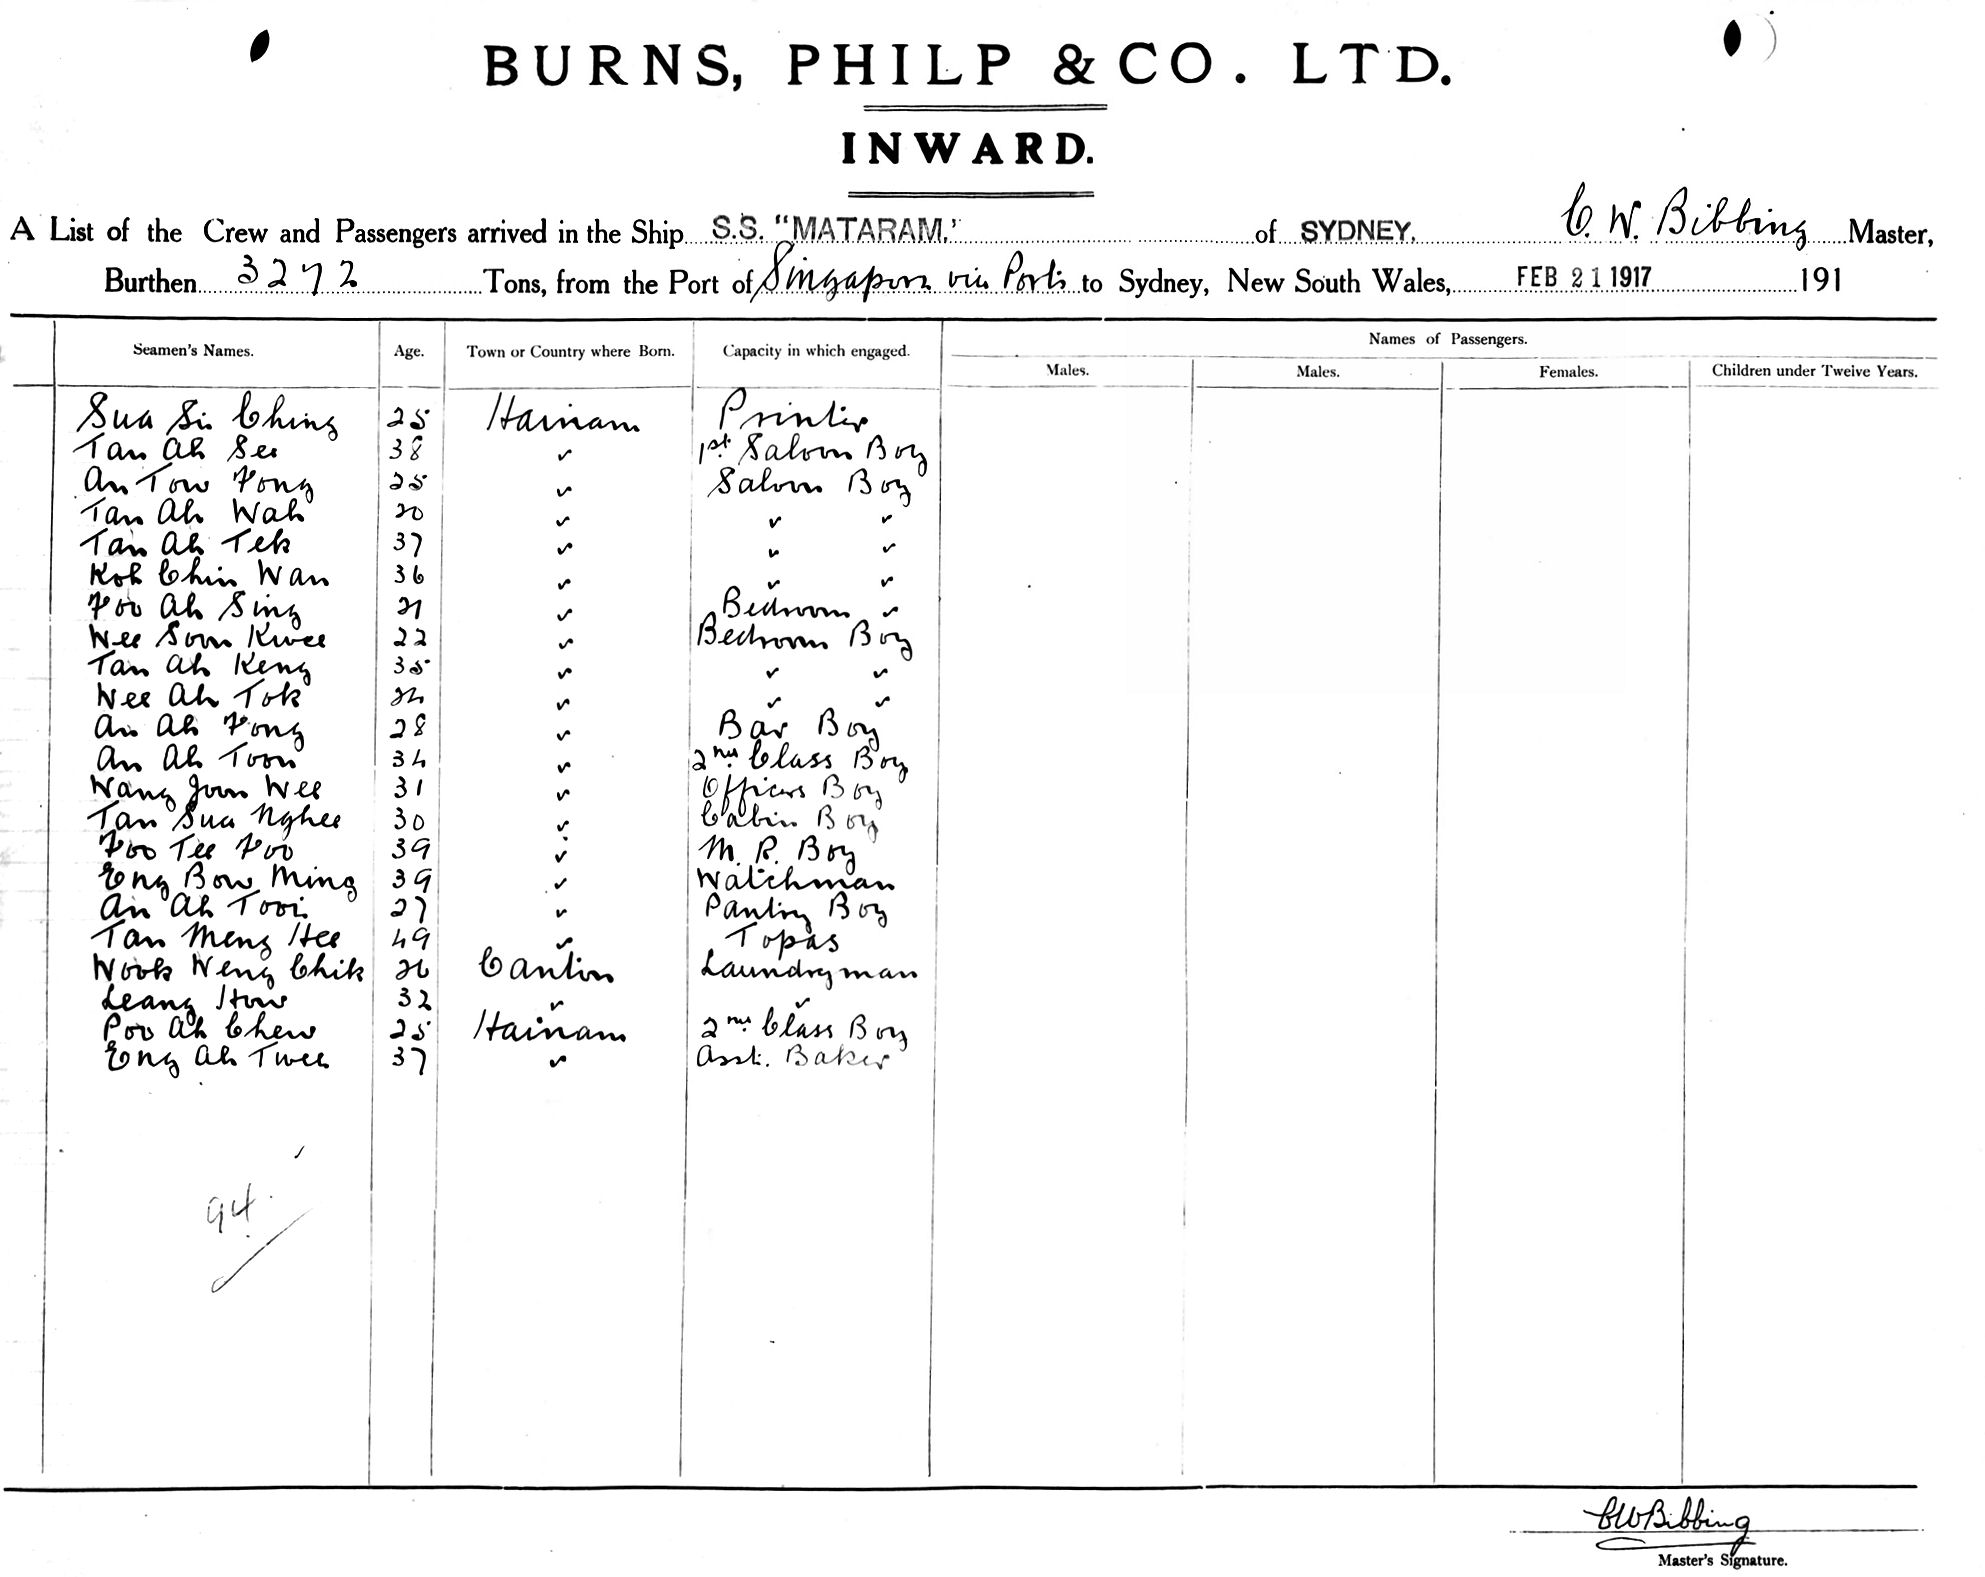 BURNS, PHILP & CO. LTD.
INWARD.
A List of the Crew and Passengers arrived in the Ship S.S. "MATARAM." of SYDNEY. C. W. Bibbing Master,
Burthen 3272 Tons, from the Port of Singapore via Ports to Sydney, New South Wales, FEB 21 1917 191
Seamen's Names. Age. Town or Country where Born. Capacity in which engaged. Names of Passengers.
Males. Males. Females. Children under Twelve Years.
Sua Si Ching 25 Hainam Printer
Tan Ah See 38 " 1st Saloon Boy
An Tow Fong 25 " Saloon Boy
Tan Ah Wah 20 " " "
Tan Ah Tek 37 " " "
Koh Chin Wan 36 " " "
Foo Ah Sing 21 " Bedroom "
Wee Soon Kwee 22 " Bedroom Boy
Tan Ah Keng 35 " " "
Wee Ah Tok 24 " " "
An Ah Fong 28 " Bar Boy
An Ah Toon 34 " 2nd Class Boy
Wang Joon Wee 31 " Officers Boy
Tan Sua Nghee 30 " Cabin Boy
Foo Tee Foo 39 " M. R. Boy
Eng Bow Ming 39 " Watchman
An Ah Tooi 27 " Pantry Boy
Tan Meng Hee 49 " Topas
Wook Weng Chik 26 Canton Laundryman
Leang How 32 " "
Poo Ah Chew 25 Hainam 2nd Class Boy
Eng Ah Twee 37 " Asst. Baker
94
CWBibbing
Master's Signature.